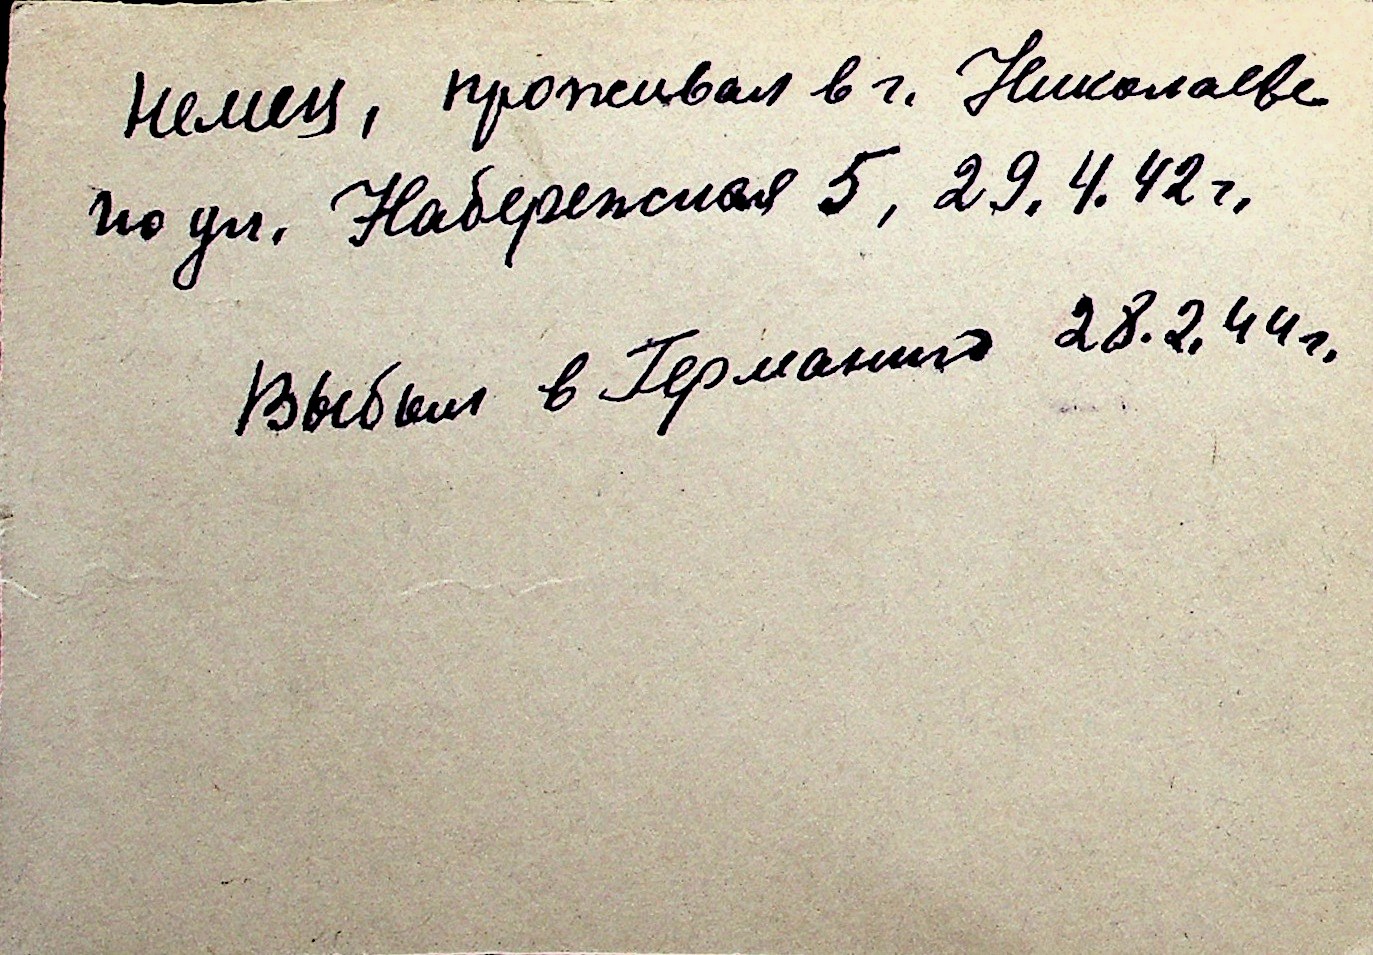 Немец, проживал в г. Николаеве
по ул. Набережная 5, 29.4.42 г.
Выбыл в Германию 28.2.44 г.